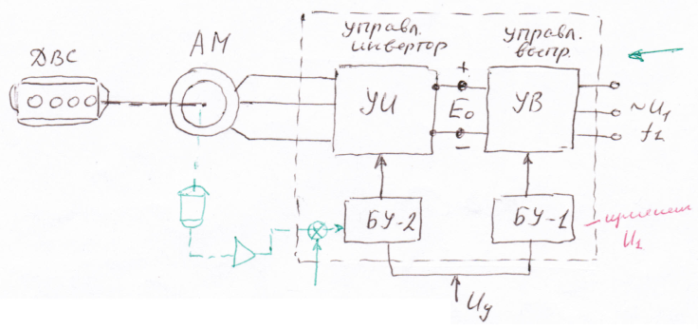 ДВС
АМ
управл.
инвертор
управл.
воспр.
УИ
+
E₀
−
УВ
~U₁
f₁
БУ-2
БУ-1
U₁
Uу